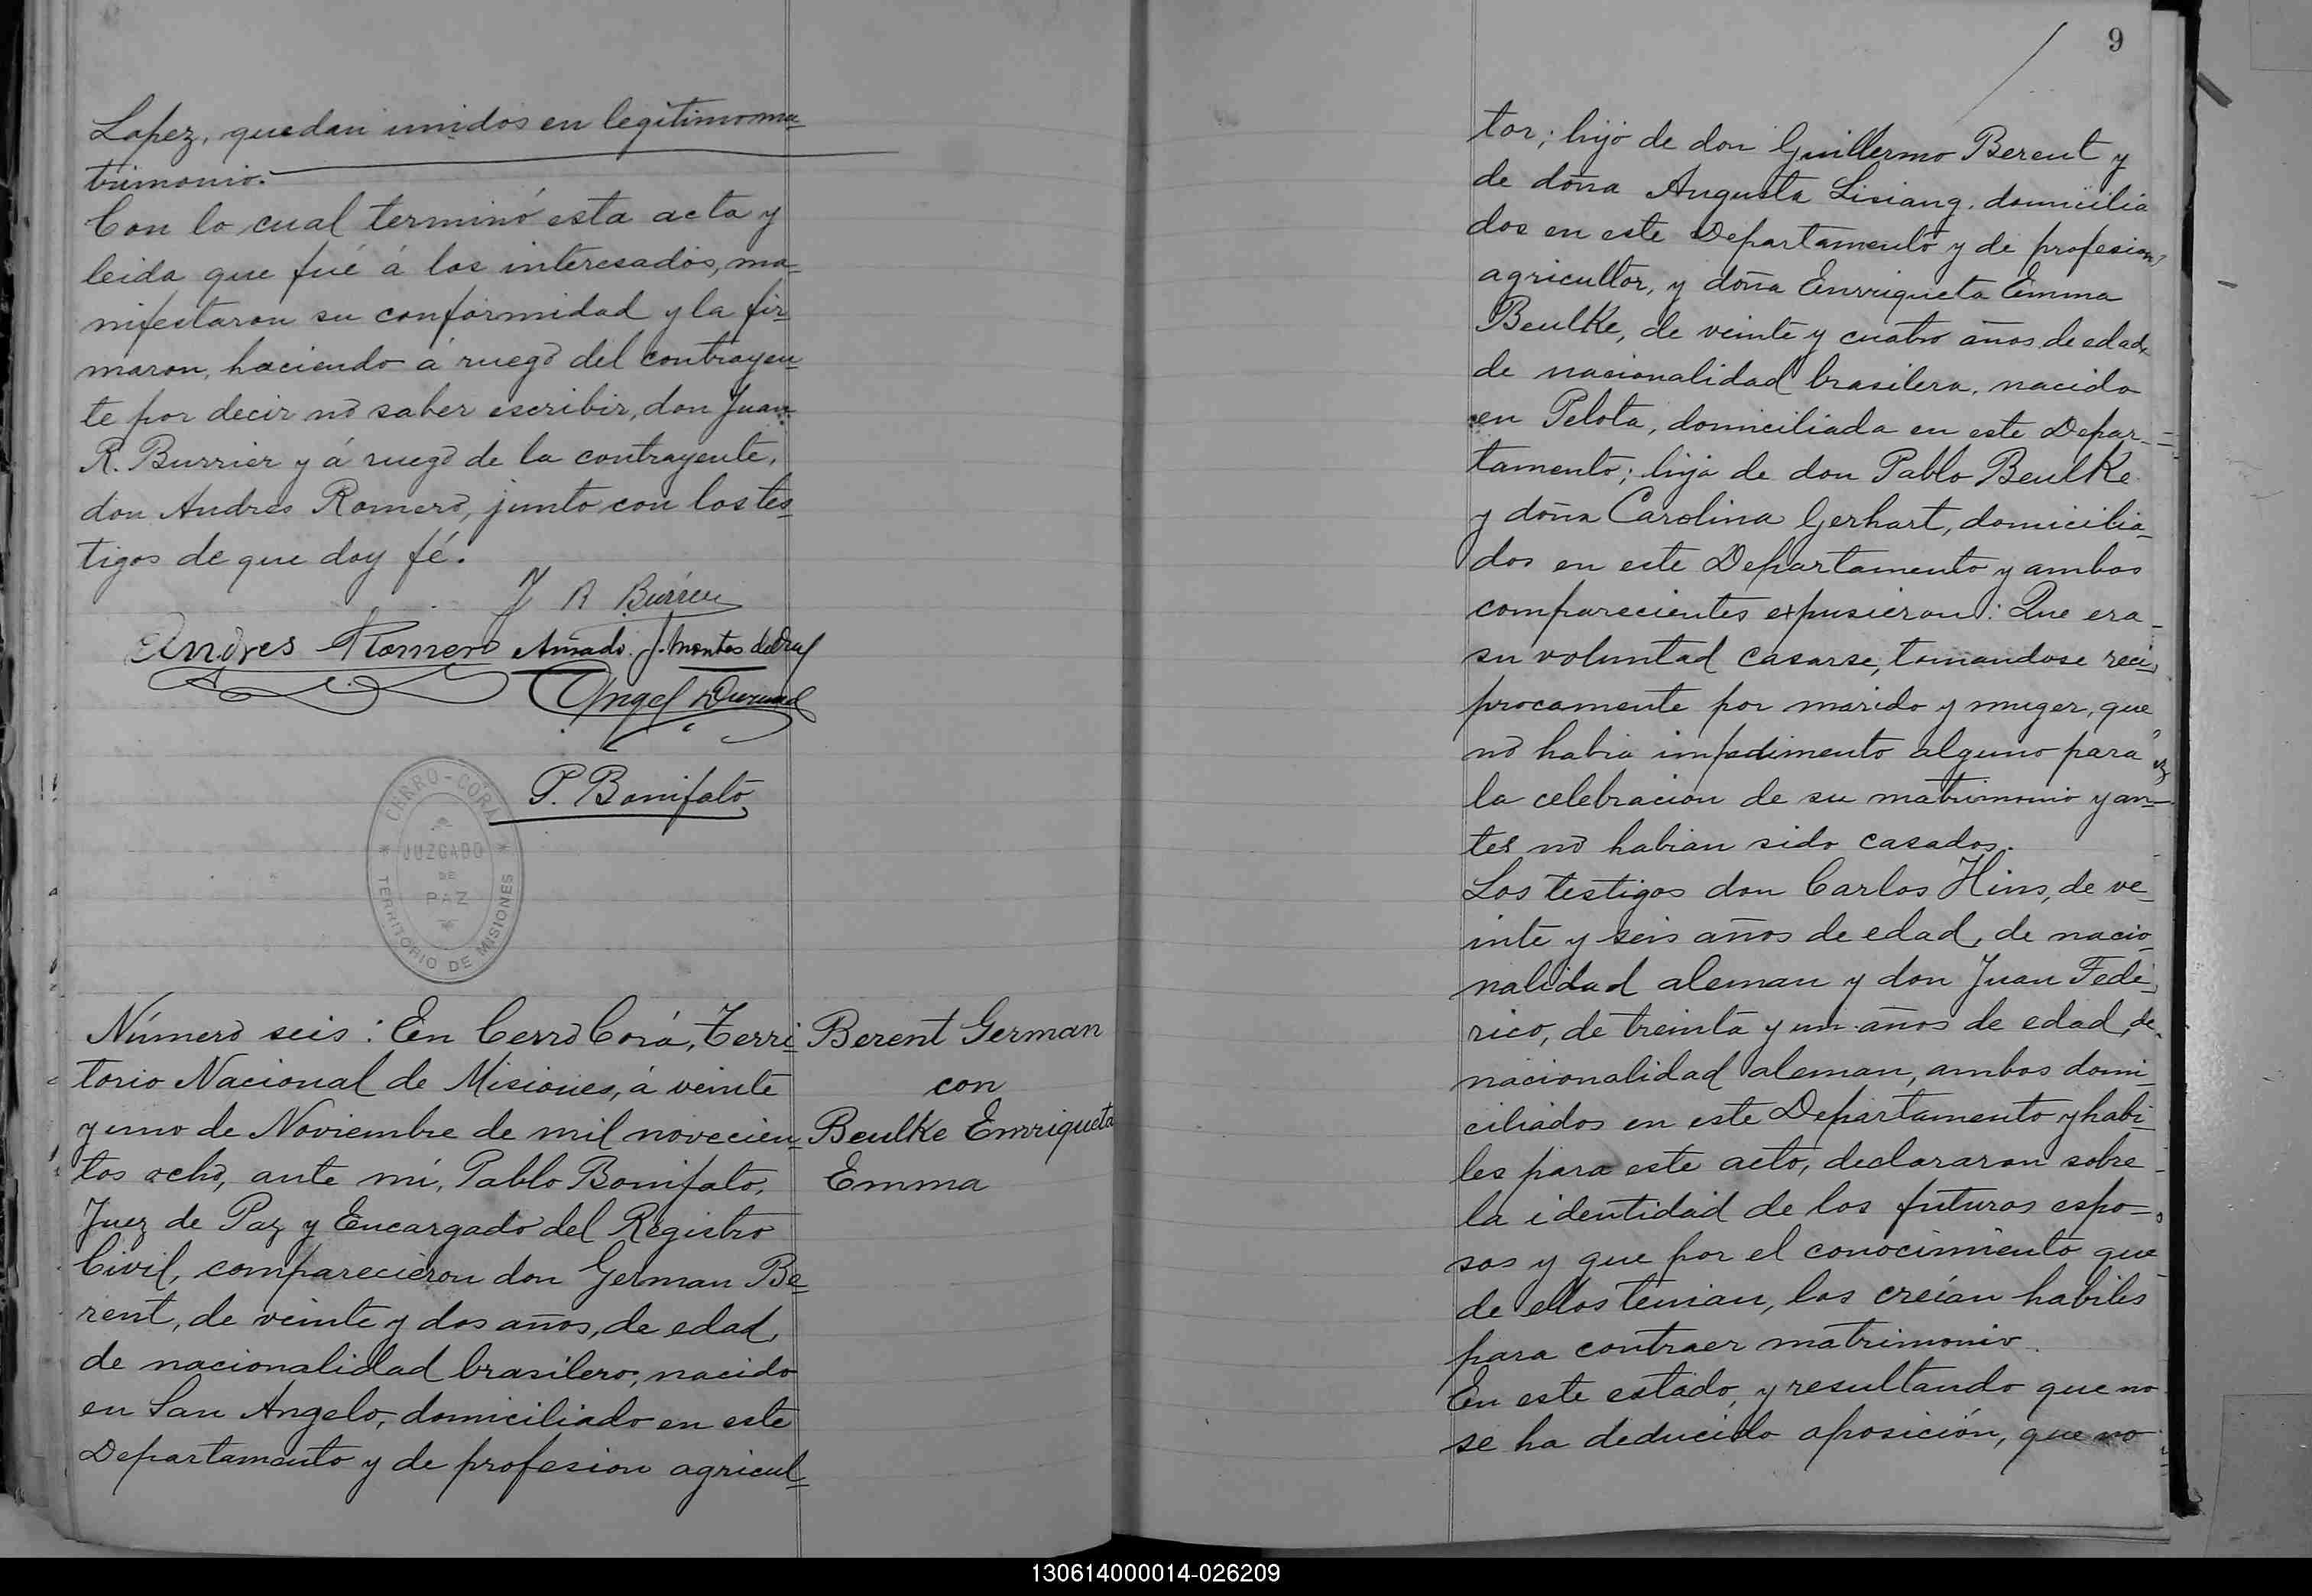 Lopez, quedan unidos en legitimo ma-
trimonio.
Con lo cual terminó esta acta y
leida que fué á los interesados, ma-
nifestaron su conformidad y la fir-
maron, haciendo á ruego del contrayen-
te por decir nó saber escribir, don Juan
R. Burrier y á ruego de la contrayente,
don Andres Romero, junto con los tes-
tigos de que doy fé.
J R Burrier
Andres Romero Amado J. Montes
Angel
P. Bonifato
CERRO-CORÁ
JUZGADO
DE
PAZ
TERRITORIO DE MISIONES
Número seis: En Cerro Corá, Terri-
torio Nacional de Misiones, á veinte
y uno de Noviembre de mil novecien-
tos ocho, ante mí, Pablo Bonifato,
Juez de Paz y Encargado del Registro
Civil, comparecieron don German Be-
rent, de veinte y dos años, de edad,
de nacionalidad brasilero, nacido
en San Angelo, domiciliado en este
Departamento y de profesion agricul-
Berent German
con
Beulke Enrriqueta
Emma
9
tor; hijo de don Guillermo Berent y
de doña Augusta Lisiang, domicilia
dos en este Departamento y de profesion
agricultor, y doña Enrriqueta Emma
Beulke, de veinte y cuatro años de edad,
de nacionalidad brasilera, nacida
en Pelota, domiciliada en este Depar-
tamento; hija de don Pablo Beulke
y doña Carolina Gerhart, domicilia-
dos en este Departamento y ambos
comparecientes expusieron: Que era
su voluntad casarse, tomandose reci-
procamente por marido y muger, que
nó habia impedimento alguno para
la celebracion de su matrimonio y an-
tes nó habian sido casados.
Los testigos don Carlos Hins, de ve-
inte y seis años de edad, de nacio-
nalidad aleman y don Juan Fede-
rico, de treinta y un años de edad, de
nacionalidad aleman, ambos domi-
ciliados en este Departamento y habi-
les para este acto, declararon sobre
la identidad de los futuros espo-
sos y que por el conocimiento que
de ellos tenian, los creían habiles
para contraer matrimonio.
En este estado, y resultando que no
se ha deducido oposición, que no
130614000014-026209